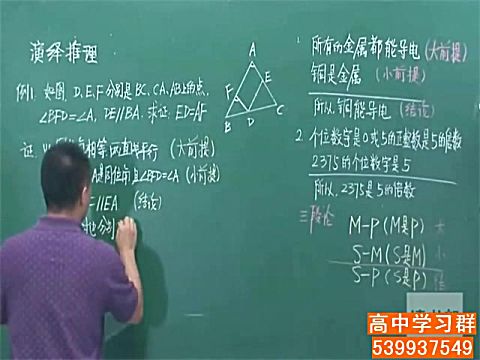 演绎推理
例1. 如图, D、E、F分别是BC、CA、AB上的点,
∠BFD=∠A, DE∥BA, 求证: ED=AF
A
F
E
B
D
C
证:
相等,两直线平行 (大前提)
∠BFD=∠A (小前提)
∥EA (结论)
1.
所有的金属都能导电 (大前提)
铜是金属 (小前提)
所以,铜能导电 (结论)
2. 个位数字是0或5的正整数是5的倍数
2375的个位数字是5
所以, 2375是5的倍数
三段论
M-P (M是P) 大
S-M (S是M) 小
S-P (S是P) 结
高中学习群
539937549